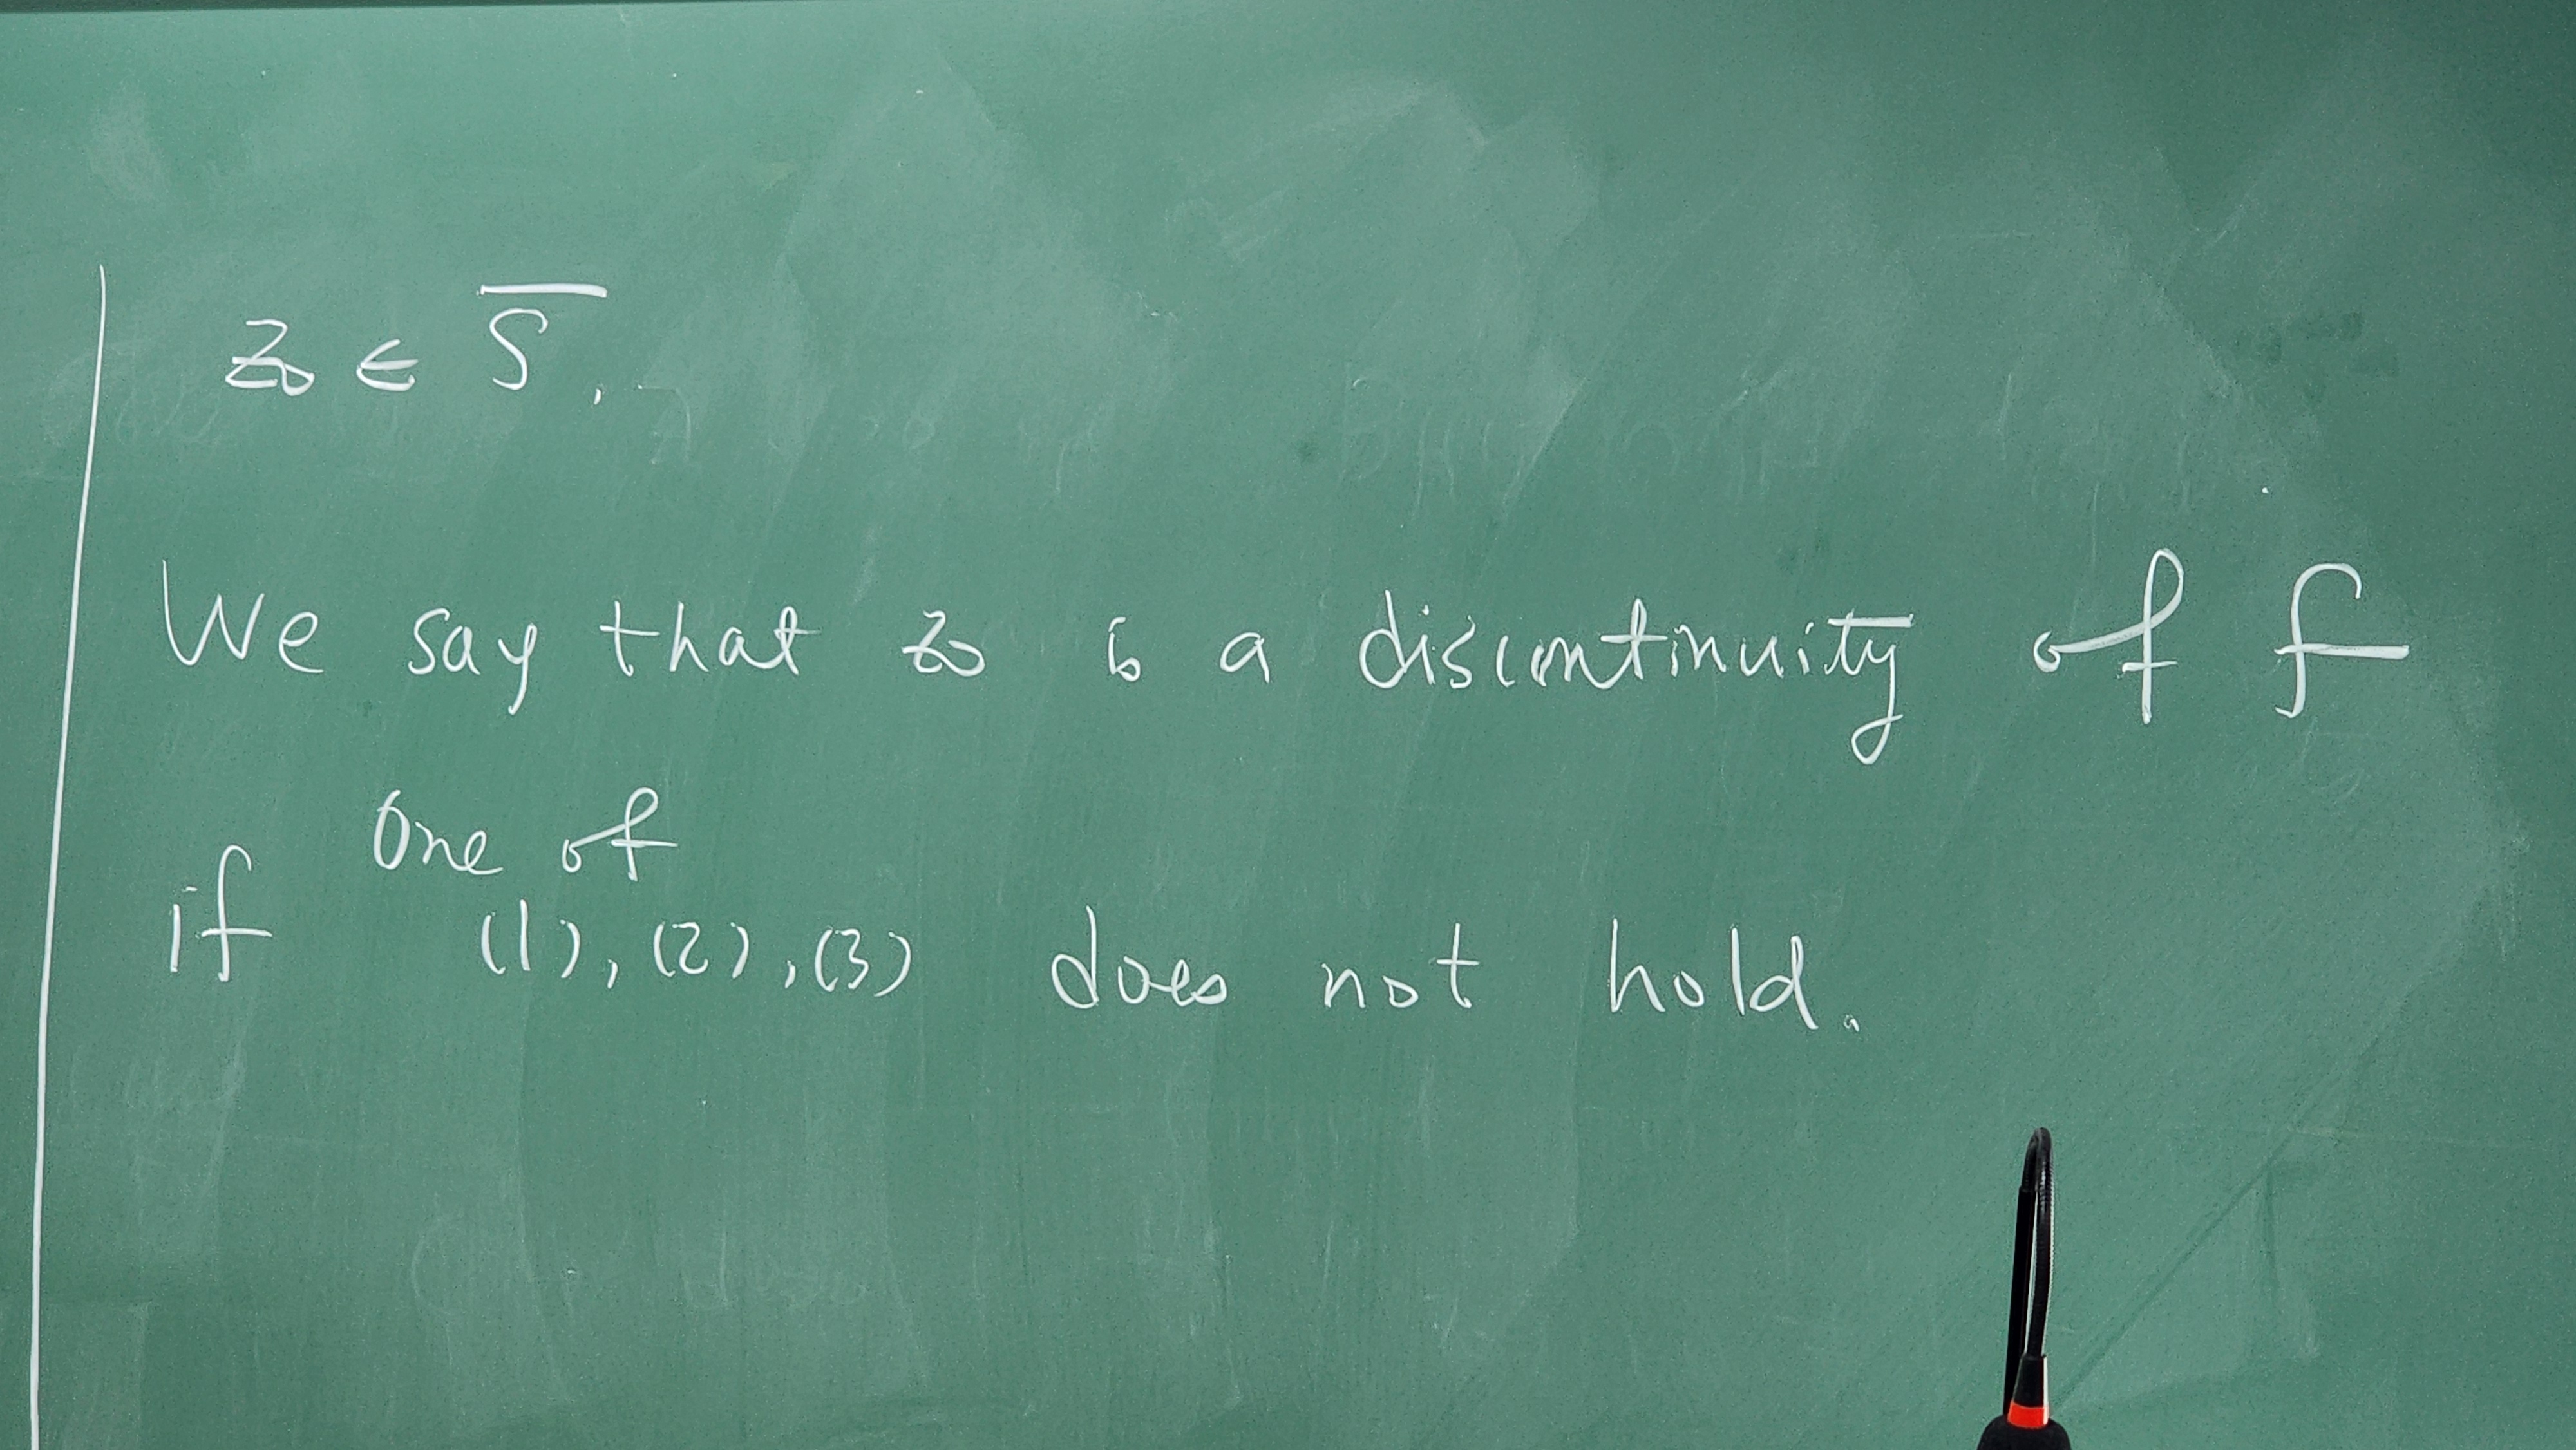 z₀ ∈ S̅,
We say that z₀ is a discontinuity of f
one of
if (1), (2), (3) does not hold.